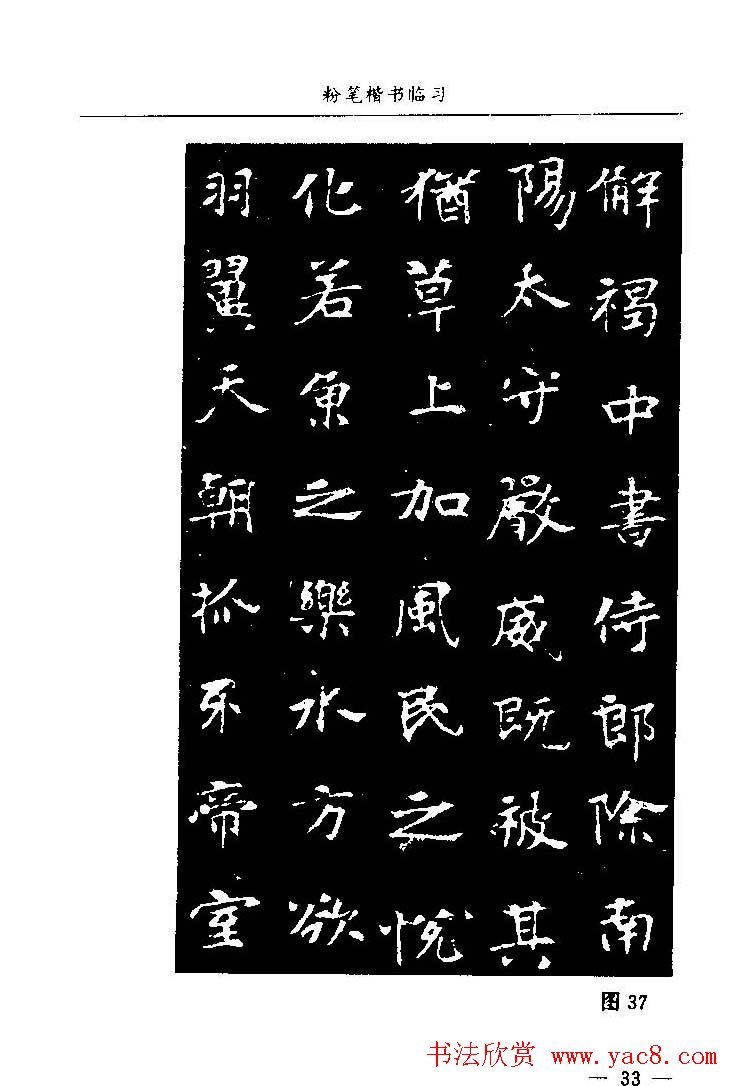 粉笔楷书临习
解褐中書侍郎除南
陽太守嚴威既被其
猶草上加風民之悅
化若魚之樂水方欲
羽翼天朝抓牙帝室
图 37
书法欣赏 www.yac8.com
— 33 —